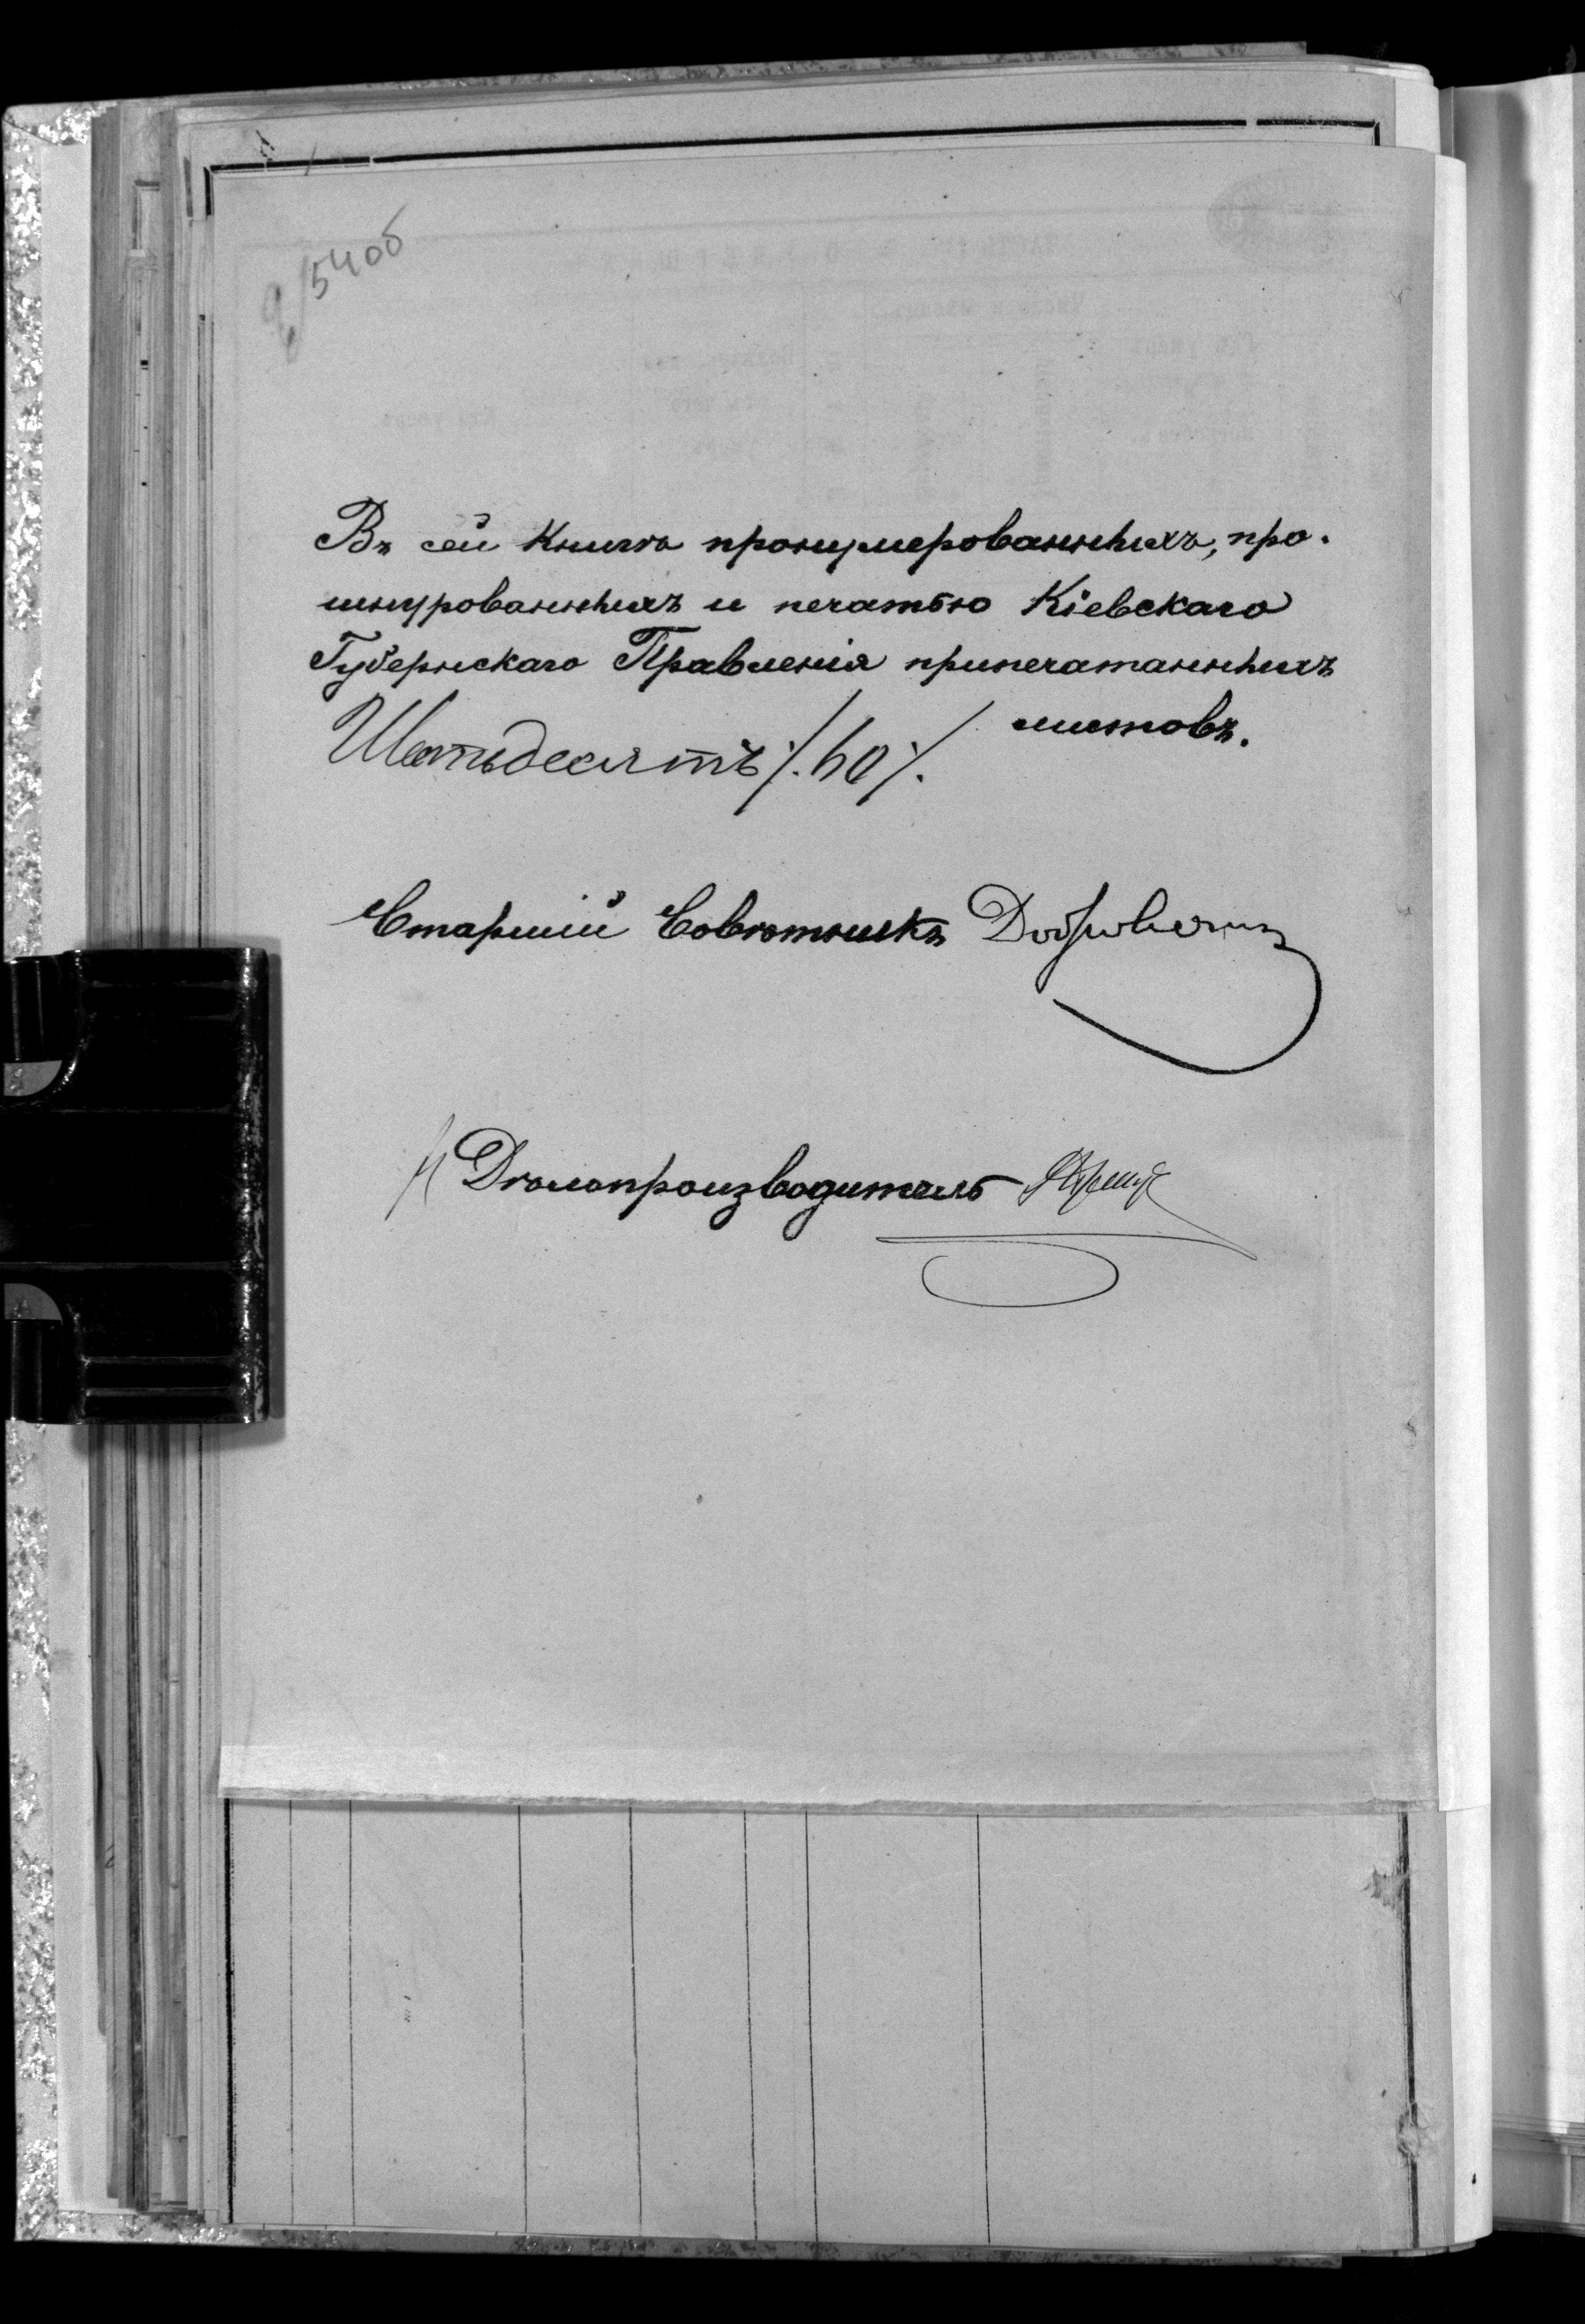 54об
Въ сей книгѣ пронумерованныхъ, про-
шнурованныхъ и печатью Кіевскаго
Губернскаго Правленія припечатанныхъ
Шестьдесятъ /.60/. листовъ.
Старшій Совѣтникъ
Дѣлопроизводитель